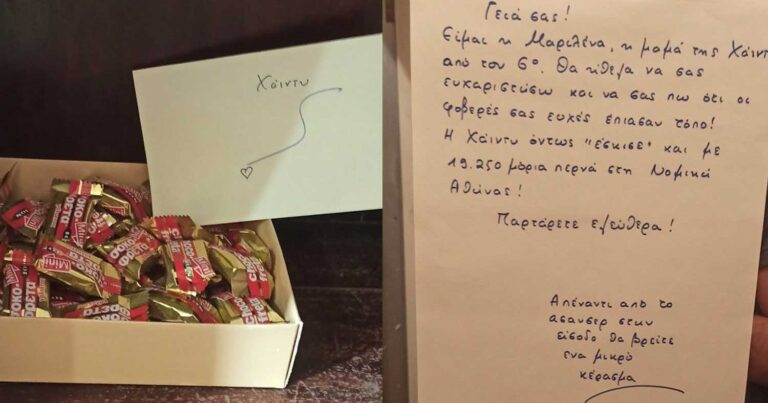 Χάιντυ
Mini
ΣΟΚΟ-
ΦΡΕΤΑ
Γειά σας!
Είμαι η Μαριλένα, η μαμά της Χάιντυ
από τον 6º. Θα ήθελα να σας
ευχαριστώσω και να σας πω ότι οι
φοβερές σας ευχές έπιασαν τόπο!
Η Χάιντυ όντως "έσκισε" και με
19.250 μόρια περνά στη Νομική
Αθήνας!
Παρτάρετε ελεύθερα!
Απέναντι από το
ασανσερ στην
είσοδο θα βρείτε
ενα μικρό
κέρασμα